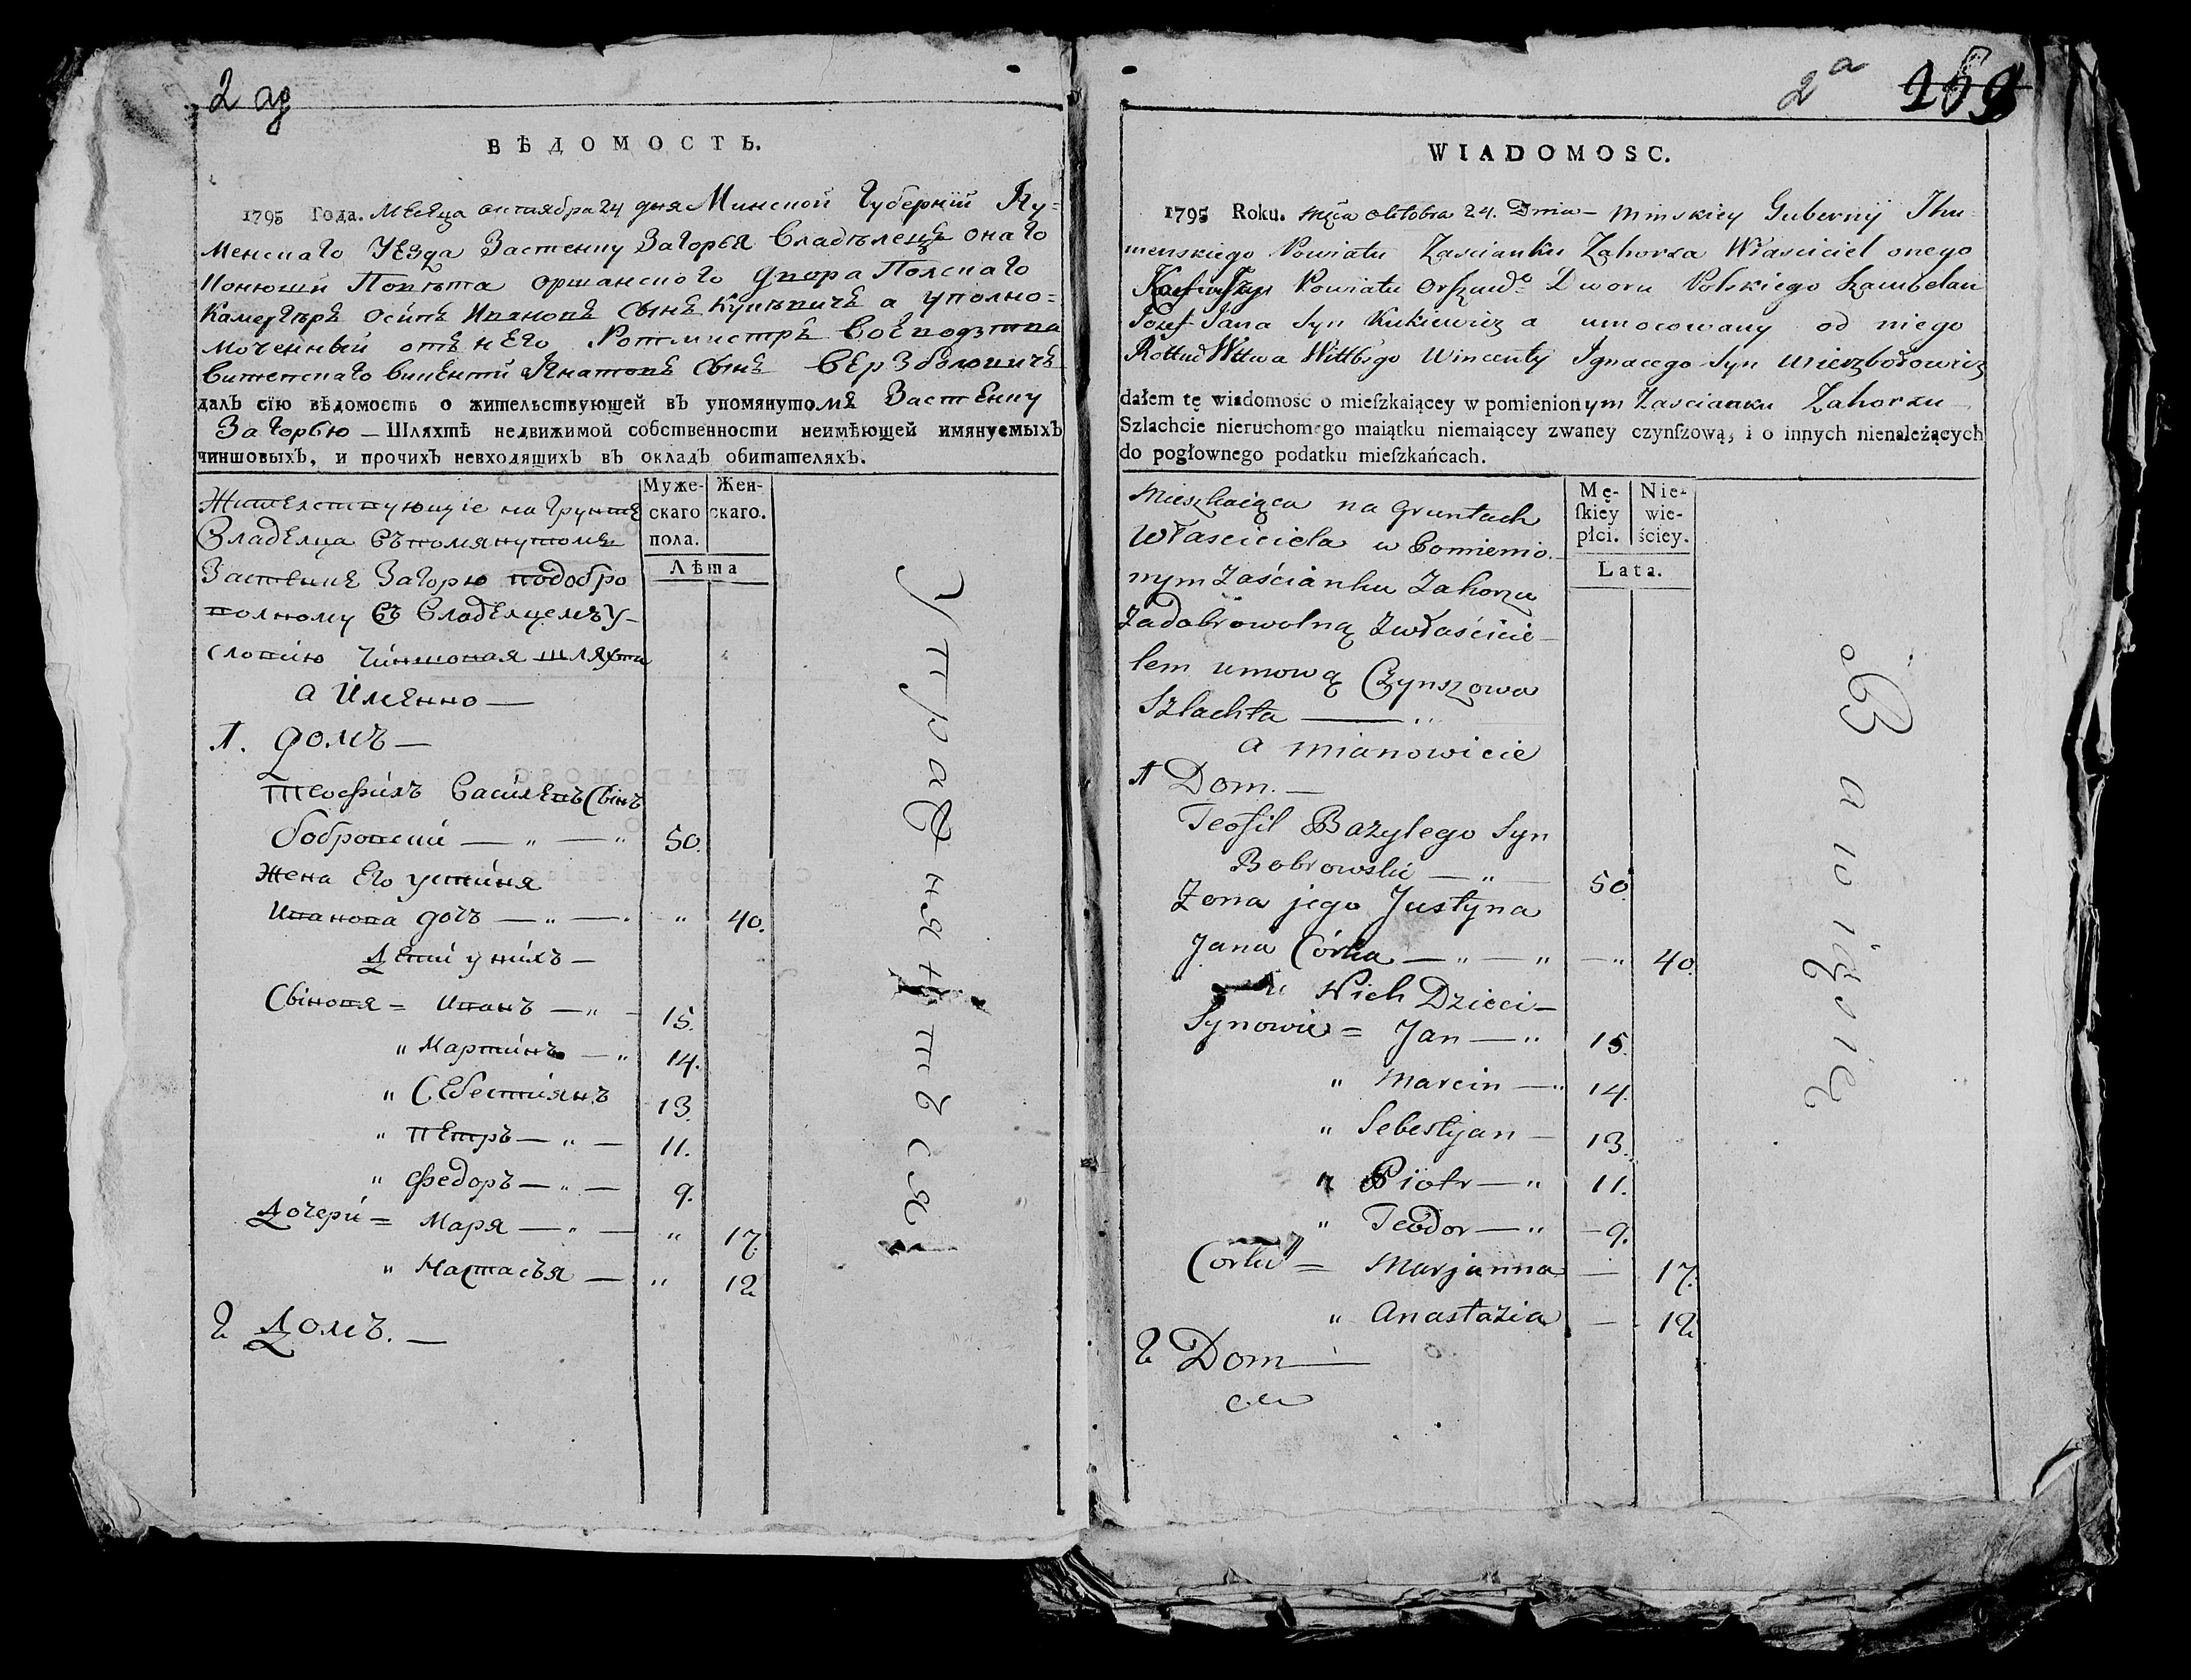 2 об
ВѢДОМОСТЬ.
1795 Года. Месяца октября 24 дня Минской Губернїи Игу=
менскаго Уезда Застенку Загорья Владѣлецъ онаго
Конюшй Повѣта Оршанского двора Полскаго
Камергеръ Осипъ Ивановъ сынъ а уполно=
моченный отъ него Ротмистръ Воеводзтва
Витепскаго Викентй Игнатовъ сынъ
далъ сїю вѣдомость о жительствующей въ упомянутомъ Застенку
Загорью — Шляхтѣ недвижимой собственности неимѣющей имянуемыхъ
чиншовыхъ, и прочихъ невходящихъ въ окладъ обитателяхъ.
Муже- Жен-
скаго скаго.
пола.
Лѣта
Жителствующіе на Грунтѣ
Владелца въ помянутомъ
Застенкѣ Загорю подобро
волному съ Владелцемъ у-
словию Чиншовая шляхта
а Именно —
1. домъ —
Теофилъ Васильевъ Сынъ
Бобровский — „ — „ 50.
Жена Его Устиния
Иванова дочъ — „ — „ 40.
Дети у нихъ —
Сыновя = Иванъ — „ — 15.
„ Мартинъ — „ 14.
„ Себестиянъ 13.
„ Петръ — „ — 11.
„ Федоръ — „ — 9.
Дочери = Маря — „ — „ 17.
„ Настасья — „ 12
2 Домъ. —
2а 259
WIADOMOSC.
1795 Roku. Mca oktobra 24. Dnia — Minskiey Gubernij Ihu-
menskiego Powiatu Zascianku Zahorza Wlasciciel onego
Powiatu Dworu Polskiego Szambelan
Jozef Jana Syn Kukiewicz a umocowany od niego
Wincenty Ignacego Syn
dałem tę wiadomość o mieſzkaiącey w pomienionym Zascianku Zahorzu —
Szlachcie nieruchomego maiątku niemaiącey zwaney czynſzową, i o innych nienależących
do pogłownego podatku mieſzkańcach.
Mę- Nie-
ſkiey wie-
płci. ściey.
Lata.
Mieszkaiąca na Gruntach
Własciciela w Pomienio-
nym Zaścianku Zahorzu
Zadobrowolną Zwłaścicie-
lem umową Czynszowa
Szlachta — „
a mianowicie
1 Dom. —
Teofil Bazylego Syn
Bobrowski — „ — 50.
Zona jego Justyna
Jana Córka — „ — „ — „ 40.
u Nich Dzieci —
Synowie = Jan — „ 15.
„ Marcin — „ 14.
„ Sebestyan — 13.
„ Piotr — „ 11.
„ Teodor — „ — 9.
Corki = Marjanna — 17.
„ Anastazia — 12
2 Dom —